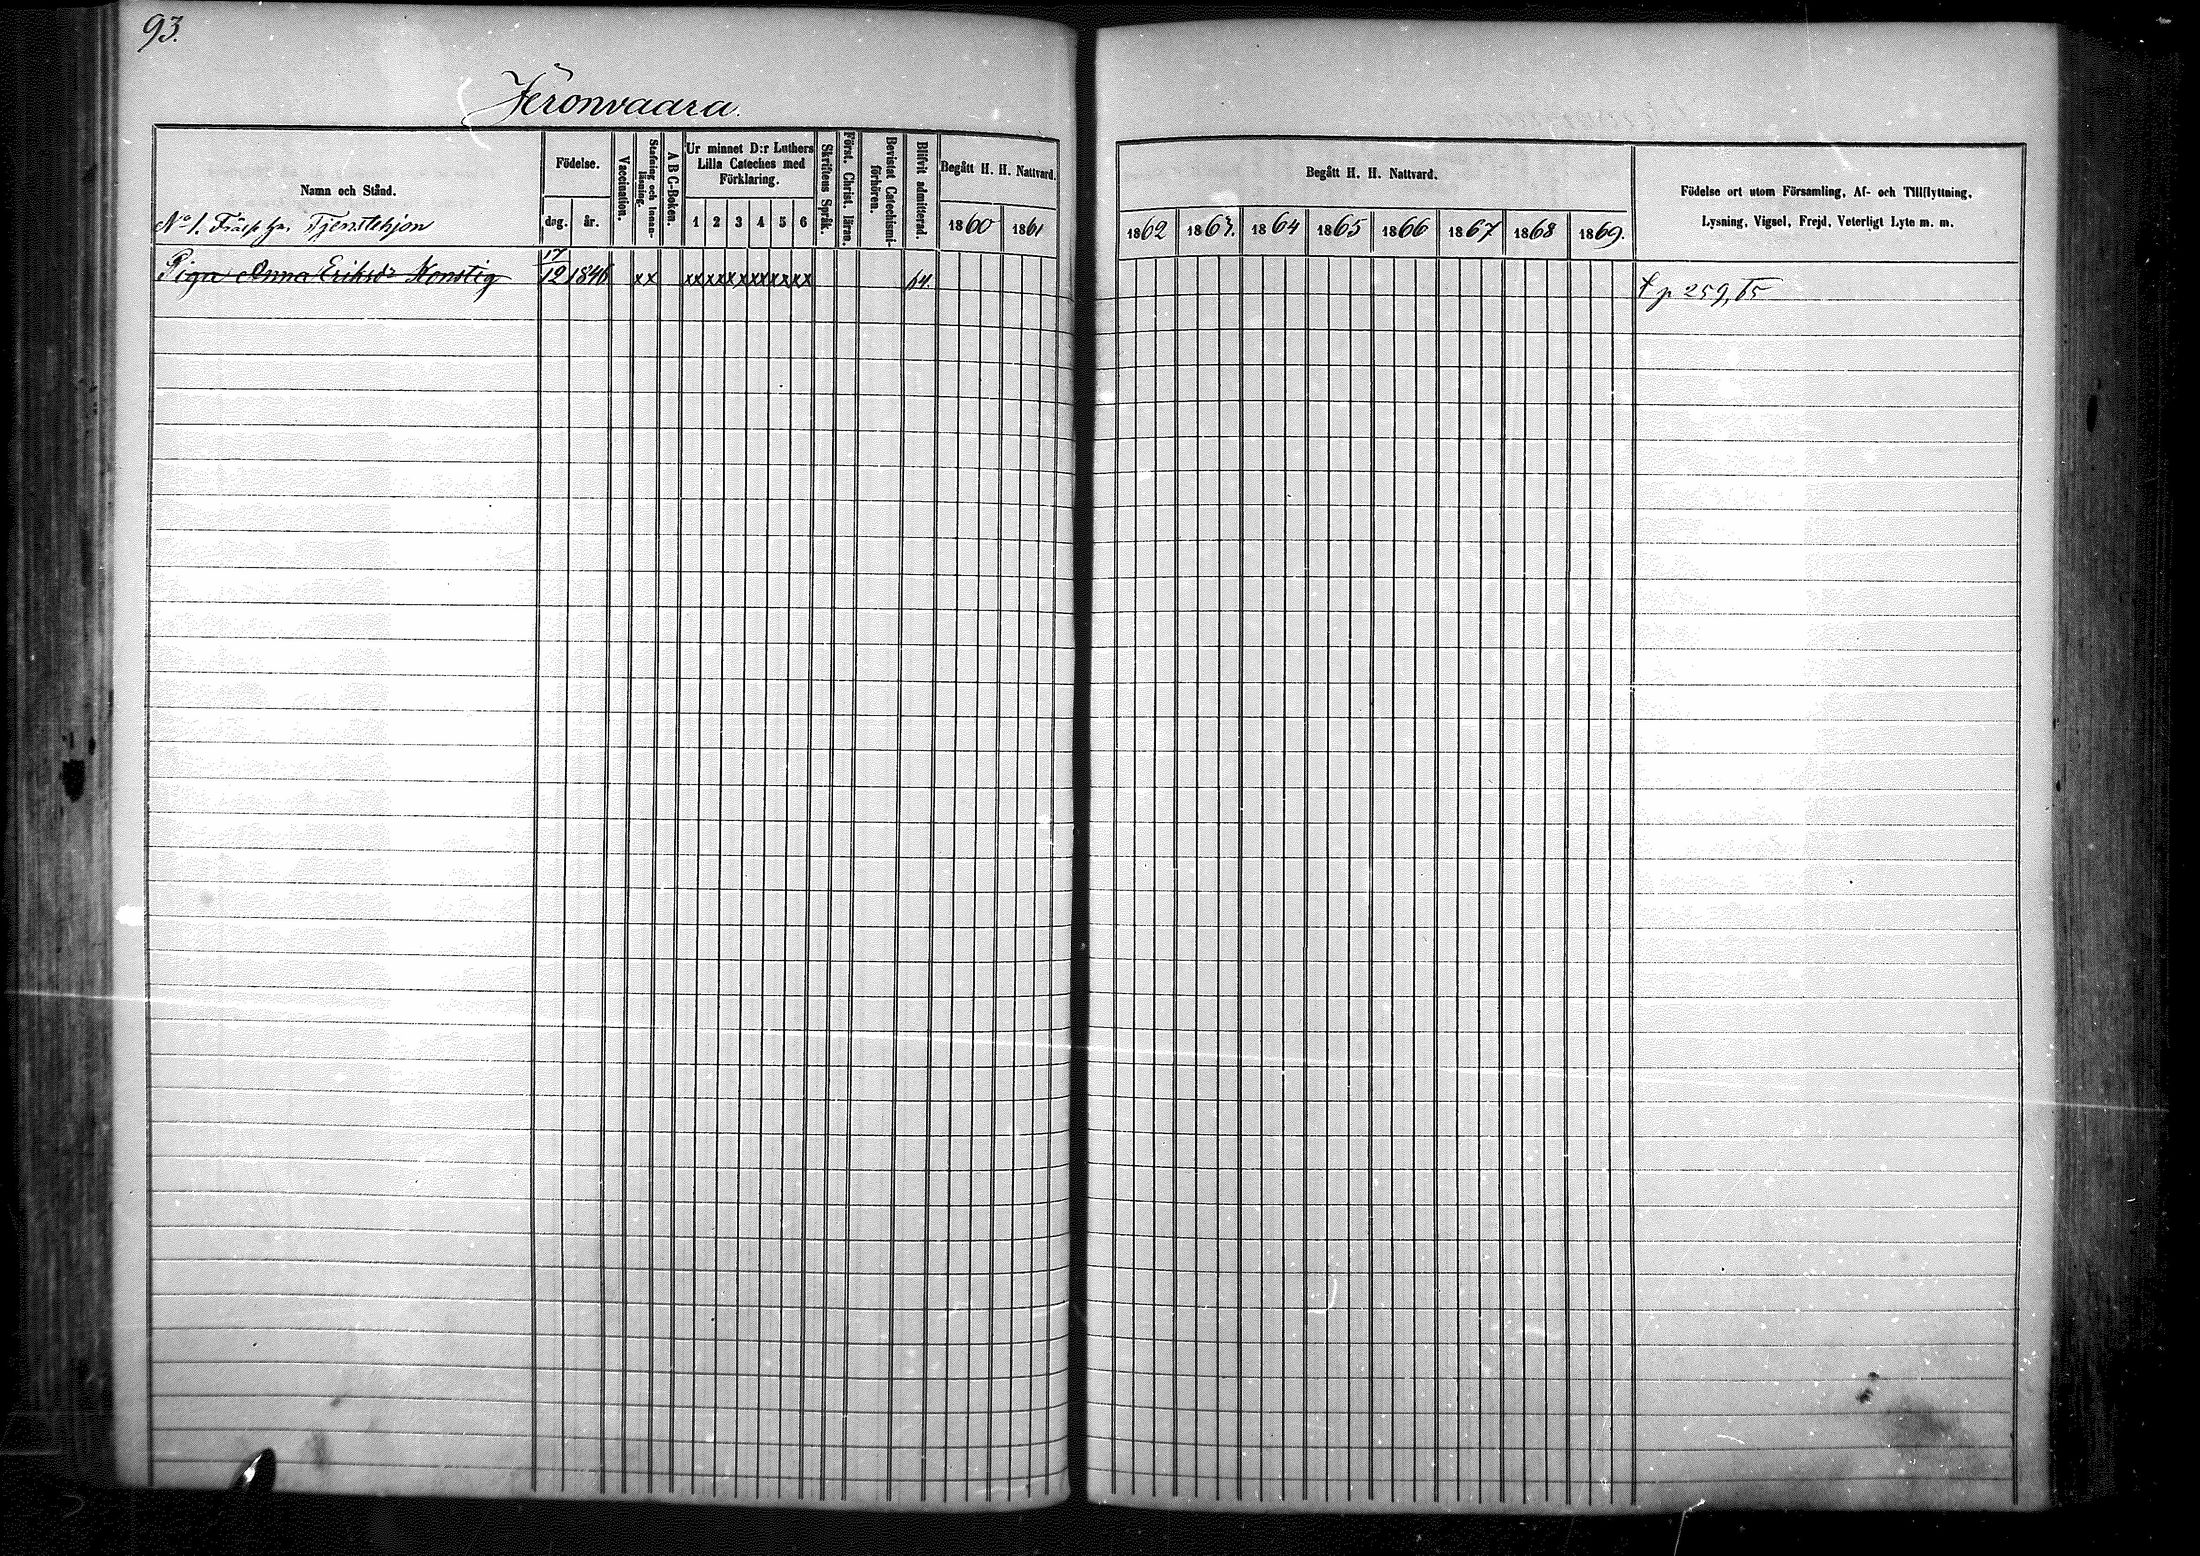 93.
Jeronvaara.
Namn och Stånd.
Födelse.
dag. år.
Vaccination.
Stafning och Innanläsning.
A B C-Boken.
Ur minnet D:r Luthers
Lilla Cateches med
Förklaring.
1 2 3 4 5 6
Skriftens Språk.
Först. Christ. läran.
Bevistat Catechismi-
förhören.
Blifvit admitterad.
Begått H. H. Nattvard.
1860 1861
Begått H. H. Nattvard.
1862 1863. 1864 1865 1866 1867 1868 1869.
Födelse ort utom Församling, Af- och Tillflyttning,
Lysning, Vigsel, Frejd, Veterligt Lyte m. m.
No 1. Tjenstehjon
Piga Anna Eriksd:r Konstig 17/12 1846 xx xx xx xx xx xx xx 64.
p 259, 65